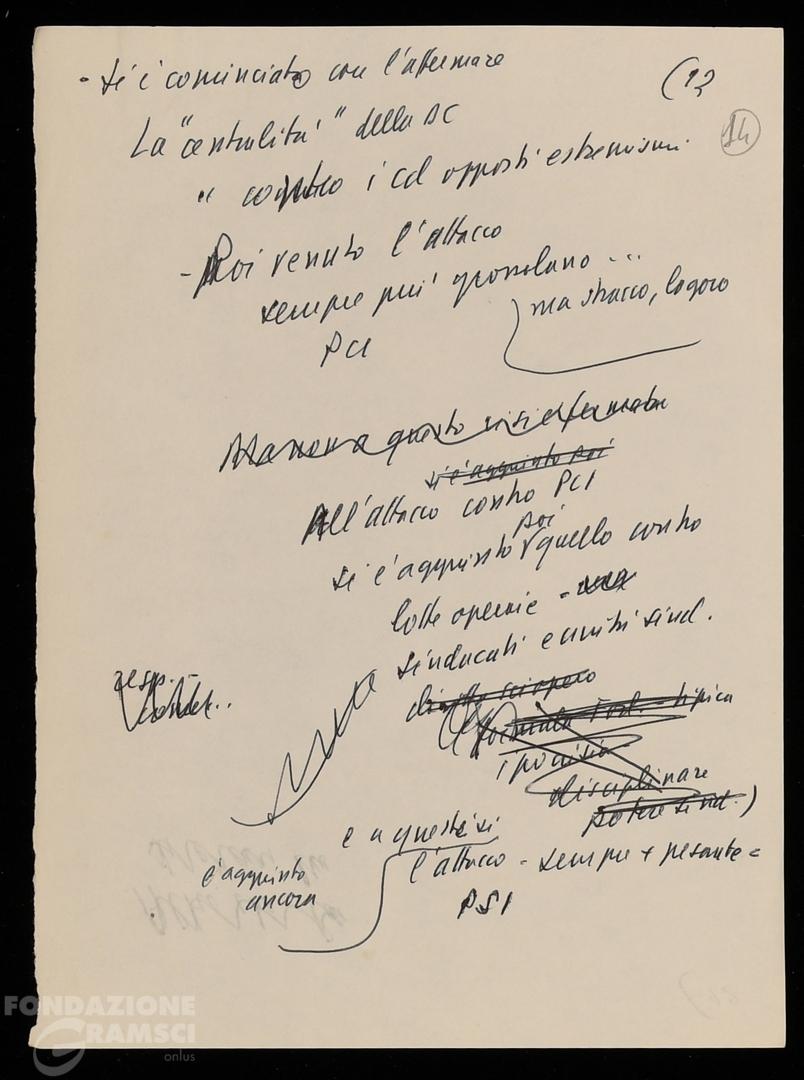 - si è cominciato con l'affermare
(12
14
La "centralità" della DC
" contro i cd opposti estremismi.
- Poi venuto l'attacco
sempre più grossolano ...
ma stracco, logoro
PCI
si è aggiunto poi
All'attacco contro PCI
poi
si è aggiunto quello contro
lotte operaie -
sindacati e unità sind.
diritto sciopero
(la formula Forl. - tipica
ipocrisia
disciplinare
potere sind.)
resp. -
e a questi si
è aggiunto
ancora
l'attacco - sempre + pesante =
PSI
FONDAZIONE
GRAMSCI
onlus